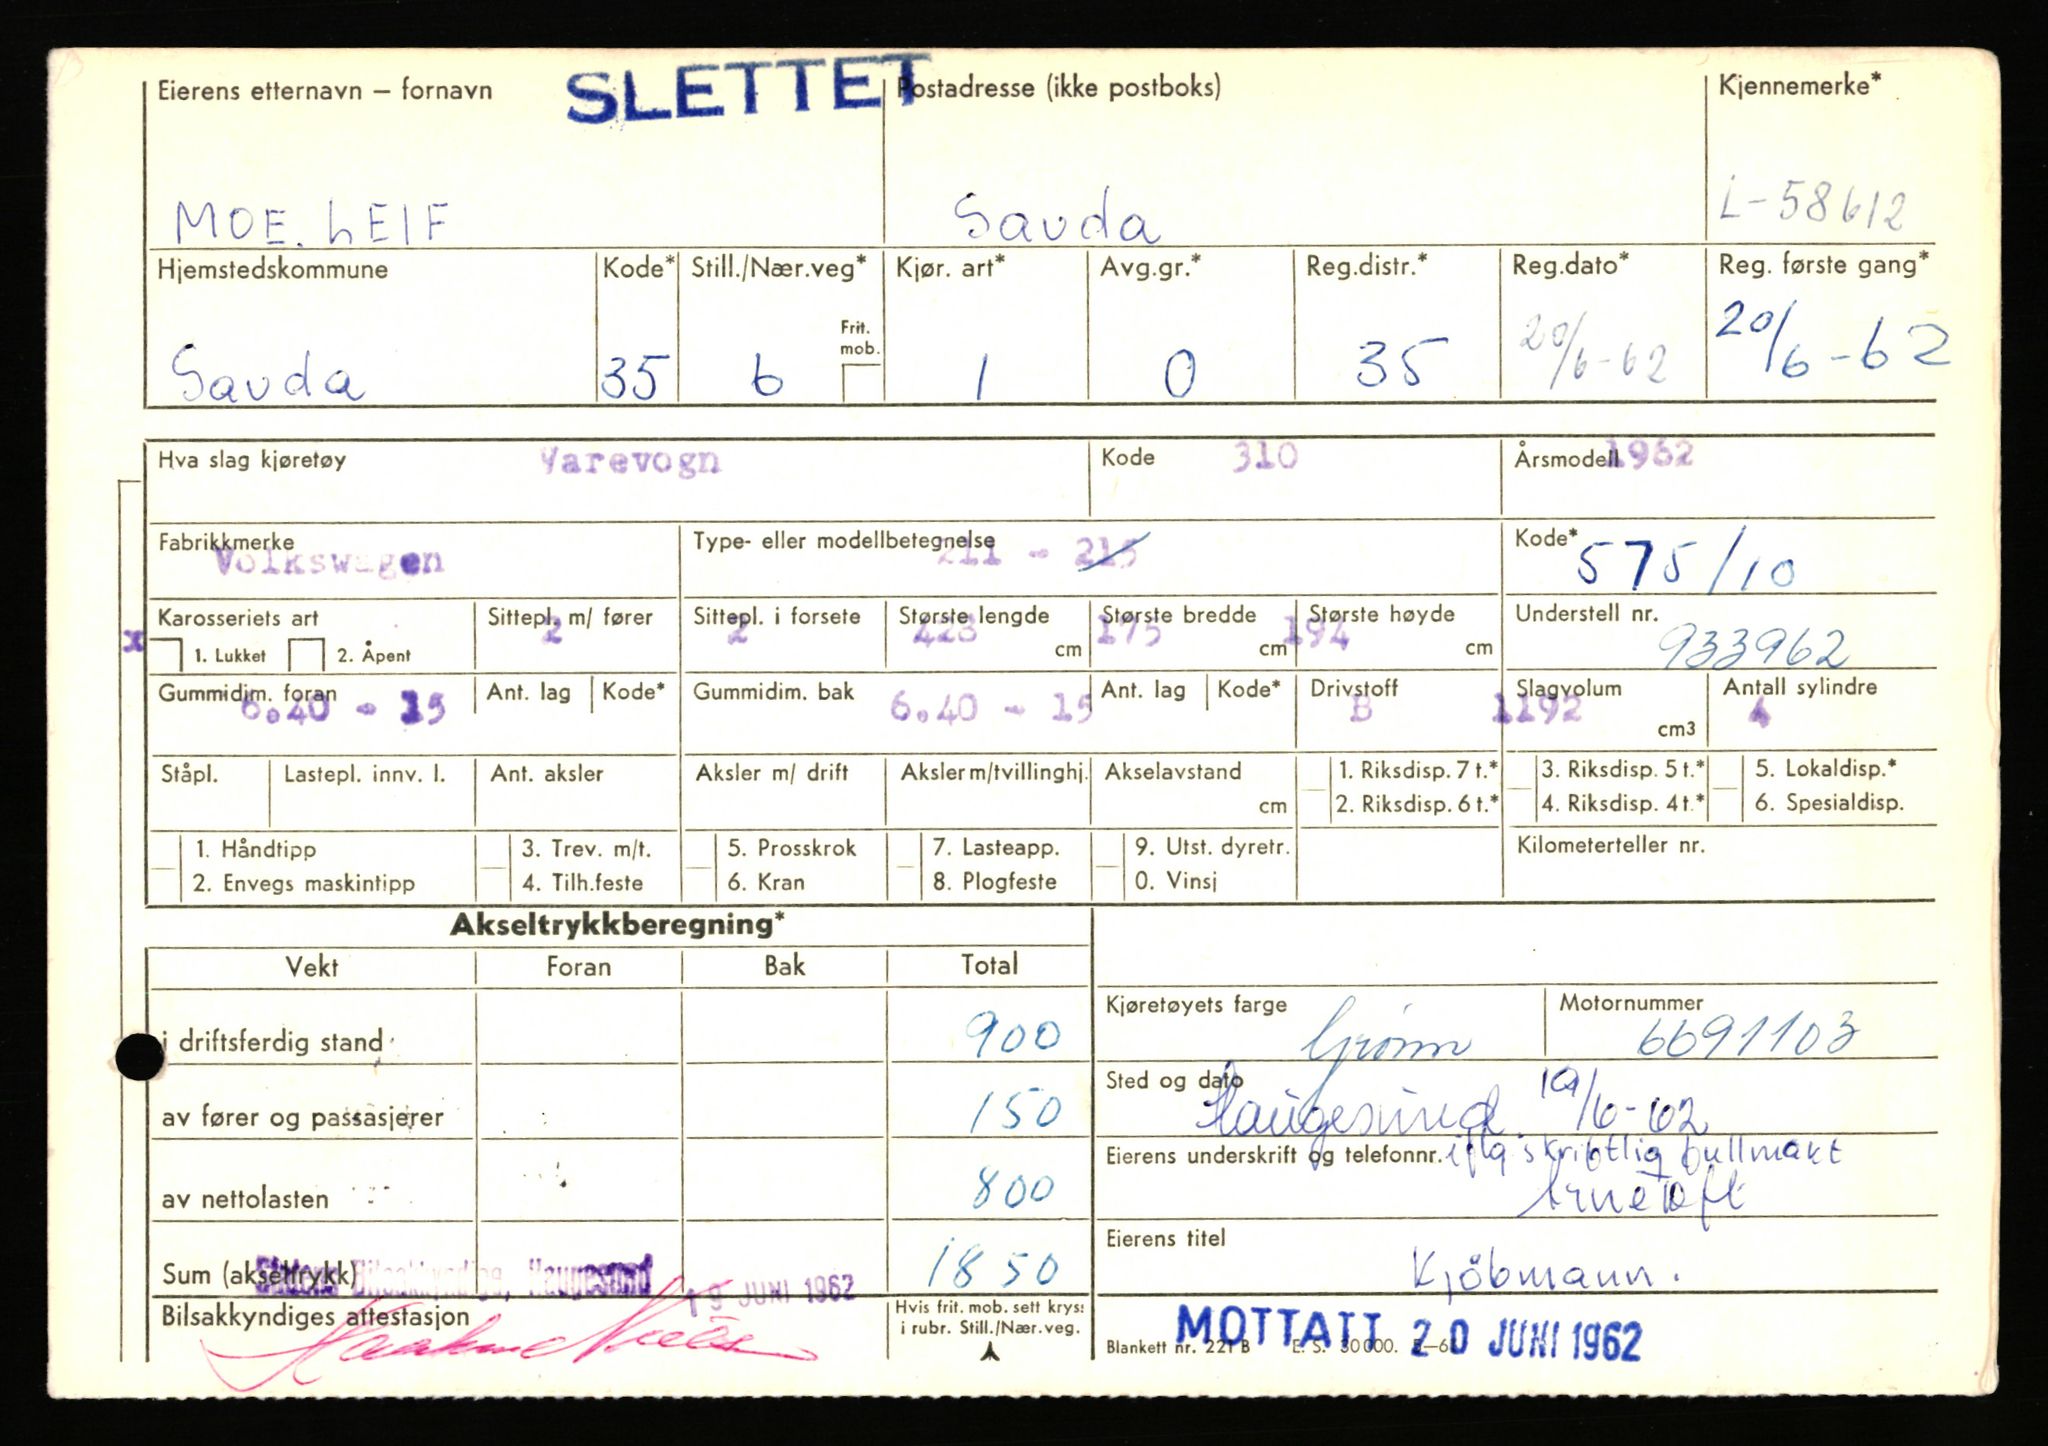 SLETTET
Eierens etternavn – fornavn Postadresse (ikke postboks) Kjennemerke*
MOE. LEIF Sauda L-58612
Hjemstedskommune Kode* Still./Nær.veg* Kjør. art* Avg.gr.* Reg.distr.* Reg.dato* Reg. første gang*
Frit. mob.
Sauda 35 6 1 0 35 20/6-62 20/6-62
Hva slag kjøretøy Varevogn Kode 310 Årsmodell 1962
Fabrikkmerke Type- eller modellbetegnelse Kode*
Volkswagen 211 - 215 575/10
Karosseriets art Sittepl. m/ fører Sittepl. i forsete Største lengde Største bredde Største høyde Understell nr.
x 1. Lukket 2. Åpent 2 2 423 cm 175 cm 194 cm 933962
Gummidim. foran Ant. lag Kode* Gummidim. bak Ant. lag Kode* Drivstoff Slagvolum Antall sylindre
6.40 - 15 6.40 - 15 B 1192 cm3 4
Ståpl. Lastepl. innv. l. Ant. aksler Aksler m/ drift Aksler m/tvillinghj. Akselavstand cm 1. Riksdisp. 7 t.* 3. Riksdisp. 5 t.* 5. Lokaldisp.*
2. Riksdisp. 6 t.* 4. Riksdisp. 4 t.* 6. Spesialdisp.
1. Håndtipp 3. Trev. m/t. 5. Prosskrok 7. Lasteapp. 9. Utst. dyretr. Kilometerteller nr.
2. Envegs maskintipp 4. Tilh.feste 6. Kran 8. Plogfeste 0. Vinsj
Akseltrykkberegning*
Vekt Foran Bak Total
i driftsferdig stand 900 Kjøretøyets farge Grønn Motornummer 6691103
av fører og passasjerer 150 Sted og dato Haugesund 19/6-62
av nettolasten 800 Eierens underskrift og telefonnr. iflg skriftlig fullmakt
Arne
Sum (akseltrykk) 1850 Eierens titel Kjöbmann.
Statens Bilsakkyndige, Haugesund 19 JUNI 1962
Bilsakkyndiges attestasjon Hvis frit. mob. sett kryss i rubr. Still./Nær.veg.
Blankett nr. 221 B E. S. 30 000.
MOTTATT 20 JUNI 1962